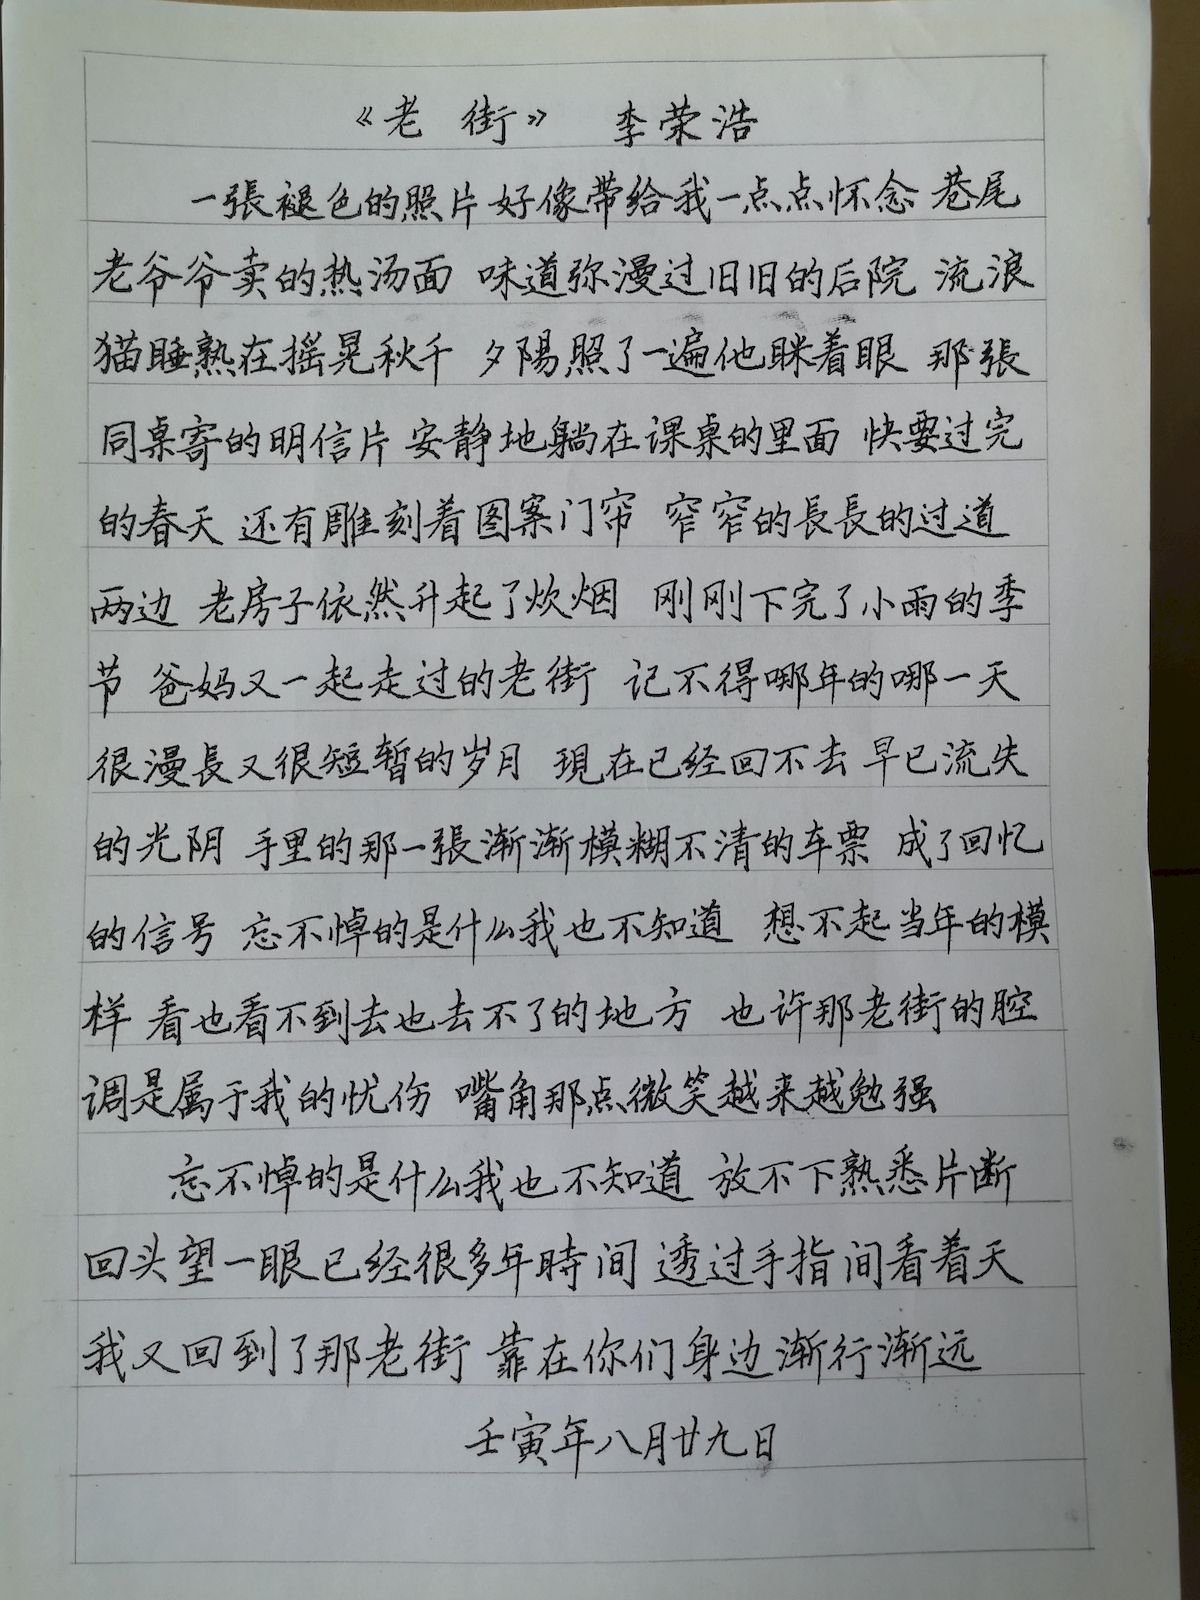 《老 街》 李荣浩
一張褪色的照片 好像带给我一点点怀念 巷尾
老爷爷卖的热汤面 味道弥漫过旧旧的后院 流浪
猫睡熟在摇晃秋千 夕陽照了一遍他眯着眼 那張
同桌寄的明信片 安静地躺在课桌的里面 快要过完
的春天 还有雕刻着图案门帘 窄窄的長長的过道
两边 老房子依然升起了炊烟 刚刚下完了小雨的季
节 爸妈又一起走过的老街 记不得哪年的哪一天
很漫長又很短暂的岁月 現在已经回不去 早已流失
的光阴 手里的那一張渐渐模糊不清的车票 成了回忆
的信号 忘不悼的是什么我也不知道 想不起当年的模
样 看也看不到去也去不了的地方 也许那老街的腔
调是属于我的忧伤 嘴角那点微笑越来越勉强
忘不悼的是什么我也不知道 放不下熟悉片断
回头望一眼已经很多年時间 透过手指间看着天
我又回到了那老街 靠在你们身边渐行渐远
壬寅年八月廿九日